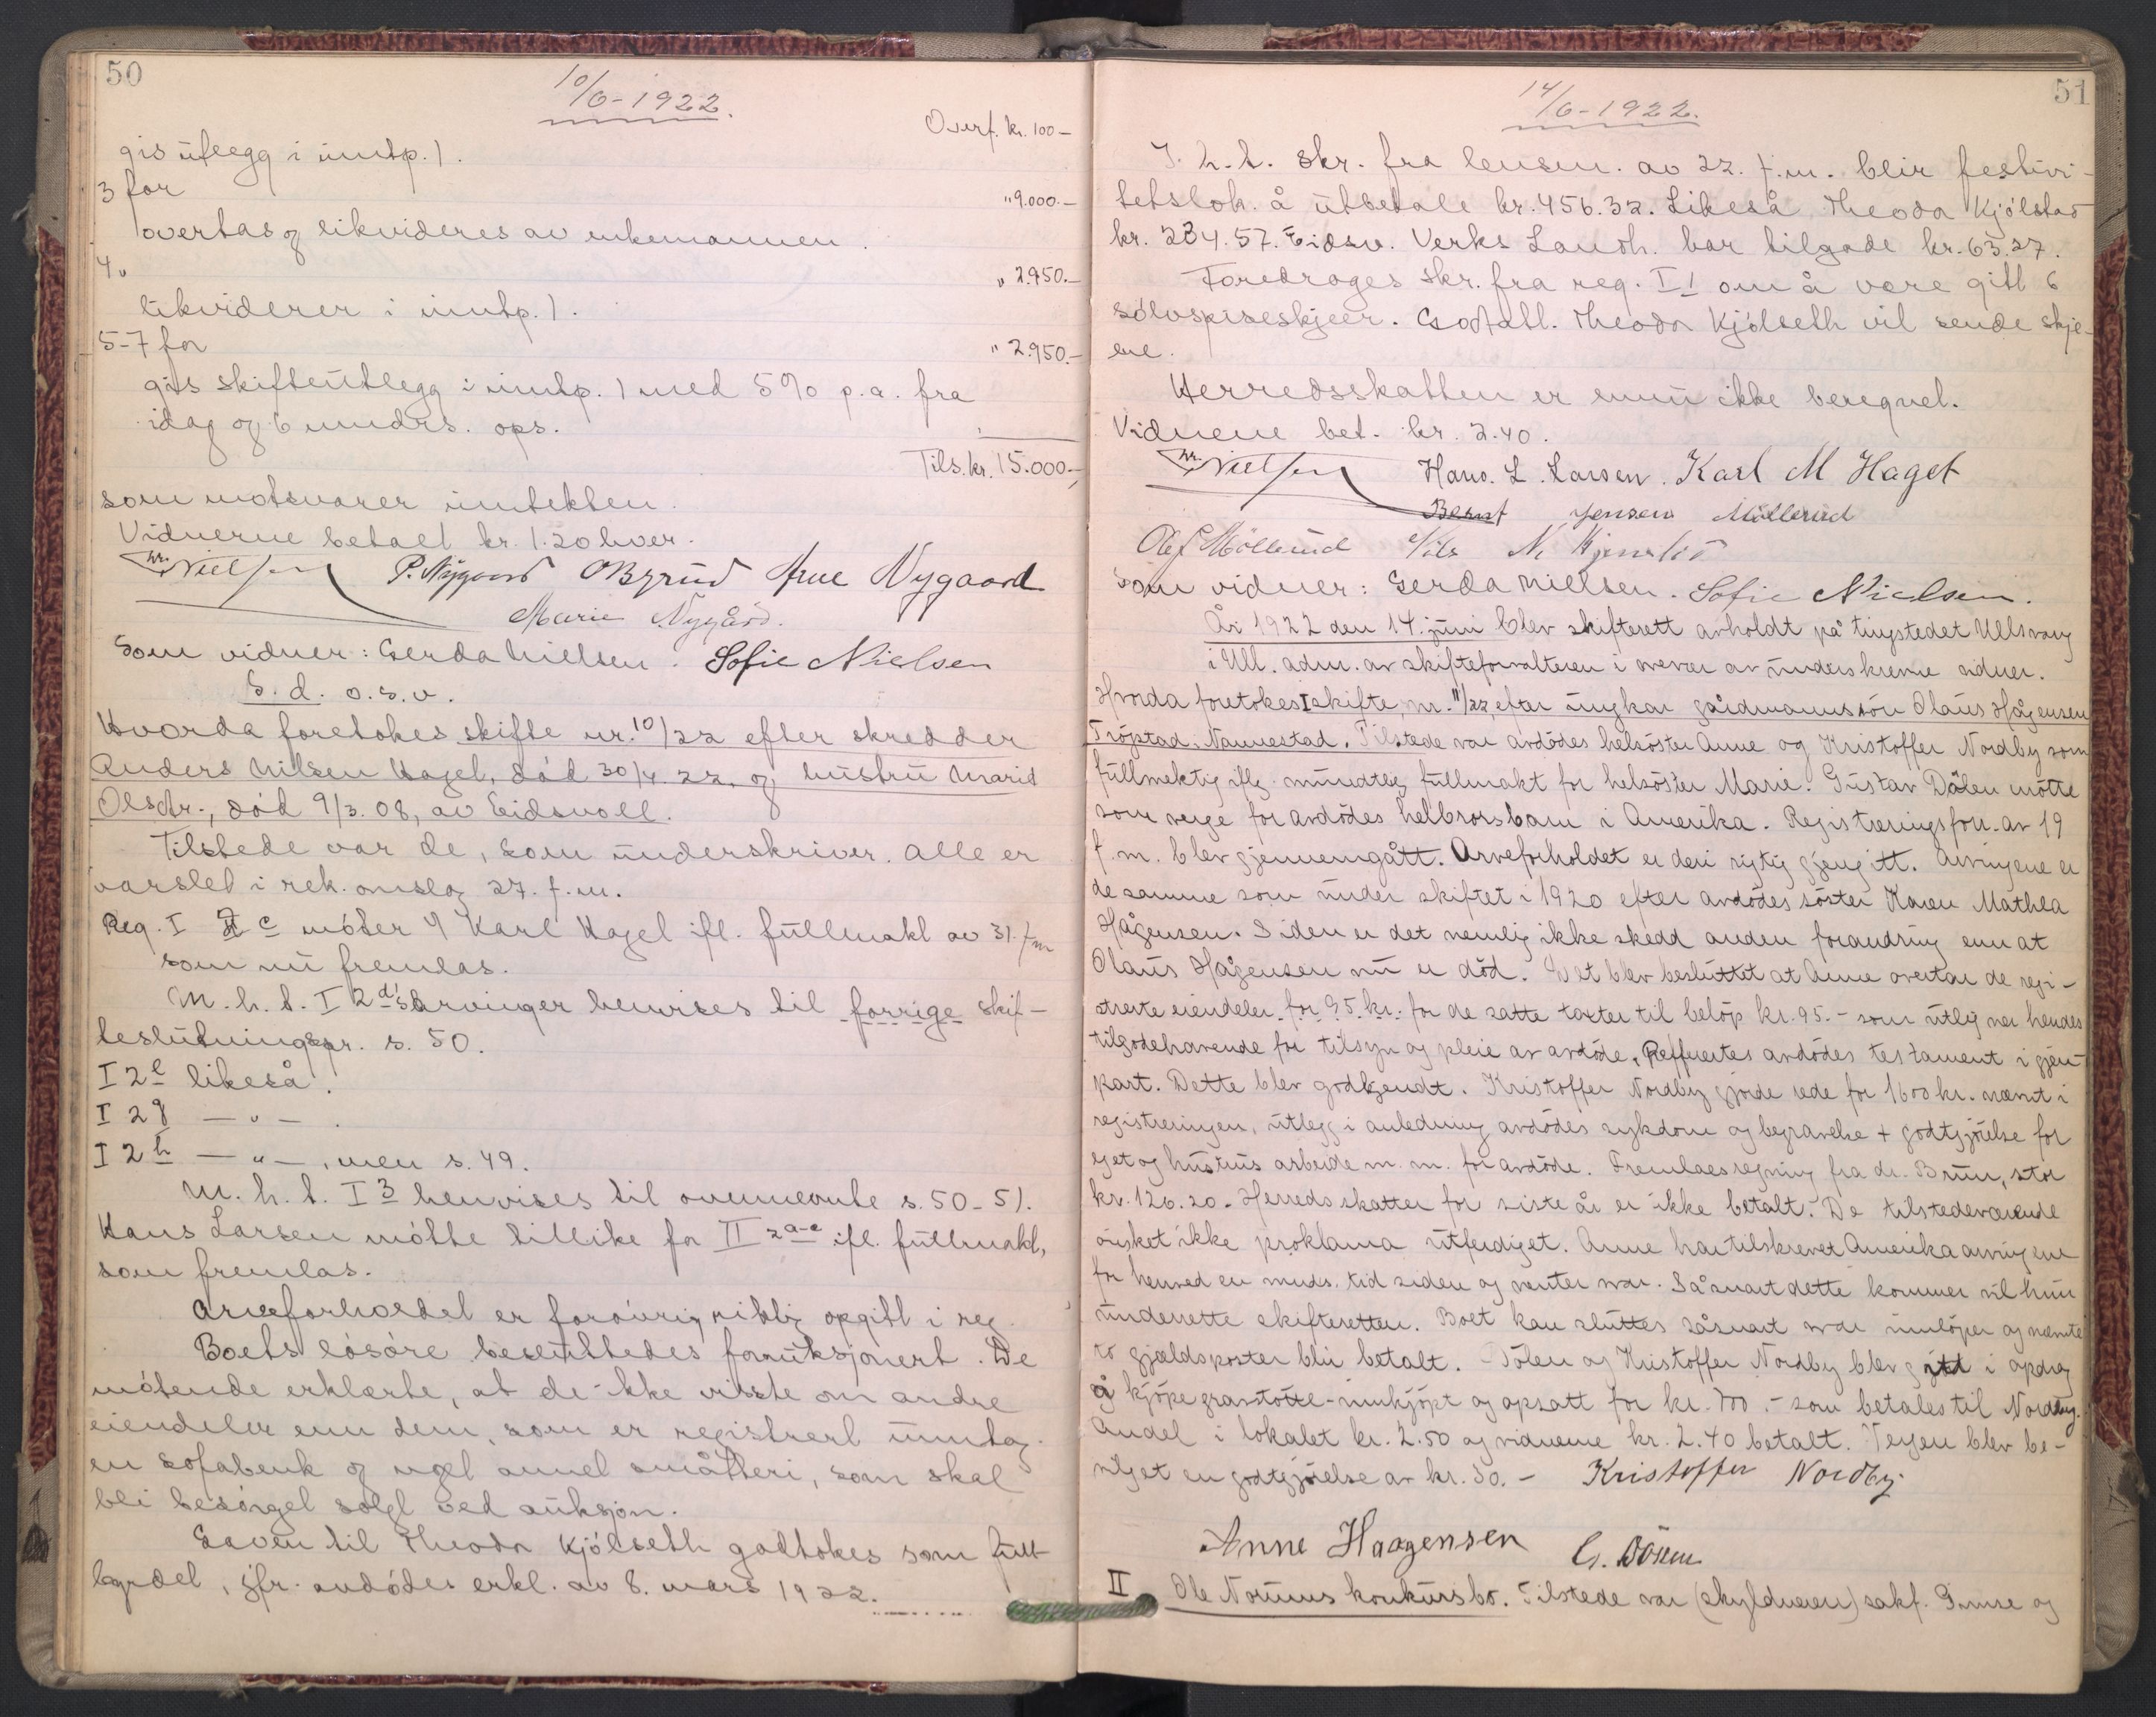 50
10/6-1922.
Overf. kr. 100-
gis utlegg i inntp. 1.
3 for "9.000.-
overtas og likvideres av enkemannen.
4 " " 2.950.-
likviderer i inntp. 1.
5-7 for " 2.950.-
gis skifteutlegg i inntp. 1 med 5% p.a. fra
idag og 6 mndrs. ops.
Tils. kr. 15.000,-
som motsvarer inntekten.
Vidnerne betalt kr. 1.20 hver.
Nielsen P. Nygaard O Byrud Arne Nygaard
Marie Nygård.
Som vidner: Gerda Nielsen. Sofie Nielsen
S. d. o.s.v.
Hvorda foretokes skifte nr. 10/22 efter skredder
Anders Nilsen Hagel, död 30/4.22. og hustru Marie
Olsdtr., död 9/3.08, av Eidsvoll.
Tilstede var de, som underskriver. Alle er
varslet i rek. omslag 27. f.m.
Reg. I c möter v/ Karl Hagel ifl. fullmakt av 31. f.m
som nu fremlas.
M.h.t. I 2 d's arvinger henvises til forrige skif-
teslutningspr. s. 50.
I 2 e likeså.
I 2 g — " — .
I 2 h — " —, men s. 49.
M.h.t. I 3 henvises til ovennevnte s. 50-51.
Hans Larsen mötte tillike for II 2 a-e ifl. fullmakt,
som fremlas.
Arveforholdet er forövrig riktig opgitt i reg.
Boets lösöre besluttedes forauksjonert. De
mötende erklærte, at de ikke visste om andre
eiendeler enn dem, som er registrert unntag.
en sofabenk og noget annet småtteri, som skal
bli besörget solgt ved auksjon.
Gaven til Theodor Kjölseth godtokes som full-
byrdet, jfr. avdödes erkl. av 8. mars 1922.
51
14/6-1922.
I. h. t. skr. fra lensm. av 22. f.m. blir festivi-
tetslok. å utbetale kr. 456.32. Likeså Theodor Kjölstad
kr. 234.57. Eidsv. Verks Landh. har tilgode kr. 63.27.
Foredroges skr. fra reg. I 1 om å være gitt 6
sölvspiseskjeer. Godtatt. Theodor Kjölseth vil sende skje-
ene.
Herredsskatten er ennu ikke beregnet.
Vidnene bet. kr. 2.40.
Nielsen Hans. L. Larsen. Karl M Hagel
Bernt Jensen Möllerud
Olaf Möllerud Nils N.
Som vidner: Gerda Nielsen. Sofie Nielsen.
År 1922 den 14. juni blev skifterett avholdt på tingstedet Ullsvang
i Ull. adm. av skifteforvalteren i nærvær av underskrevne vidner.
Hvorda foretokes I skifte nr. 11/22, efter ungkar gårdmannssön Olaus Hågensen
Tröpstad, Nannestad. Tilstede var avdödes helsöster Anne og Kristoffer Nordby som
fullmektig iflg. mundtlig fullmakt for helsöster Marie. Gustav Dölen mötte
som verge for avdödes helbrorsbarn i Amerika. Registreringsforr. av 19
f.m. blev gjennemgått. Arveforholdet er deri riktig gjengitt. Arvingene er
de samme som under skiftet i 1920 efter avdödes söster Karen Mathea
Hågensen. Siden er det nemlig ikke skedd anden forandring enn at
Olaus Hågensen nu er död. Det blev besluttet at Anne overtar de regi-
strerte eiendeler for 95 kr. for de satte takster til belöp kr. 95.- som utlig ner hendes
tilgodehavende for tilsyn og pleie av avdöde. Refferertes avdödes testament i gjen-
part. Dette blev godkjendt. Kristoffer Nordby gjorde rede for 1600 kr. nævnt i
registreringen, utlegg i anledning avdödes sykdom og begravelse + godtgjörelse for
eget og hustrus arbeide m. m. for avdöde. Fremlaes regning fra dr. Bruun, stor
kr. 126.20. Herredsskatten for siste år er ikke betalt. De tilstedeværende
önsket ikke proklama utferdiget. Anne har tilskrevet Amerikaarvingene
for henved en mnds. tid siden og venter svar. Såsnart dette kommer vil hun
underrette skifteretten. Boet kan sluttes såsnart svar innlöper og nævnte
to gjældsposter blir betalt. Dölen og Kristoffer Nordby blev gitt i opdrag
å kjöpe gravstötte - innkjöpt og opsatt for kr. 700.- som betales til Nordby.
Andel i lokalet kr. 2.50 og vidnene kr. 2.40 betalt. Vergen blev be-
vilget en godtgjörelse av kr. 30.- Kristoffer Nordby
Anne Haagensen G. Dölen
II Ole Normns konkursbo. Tilstede var (skyldneren) sakf. og